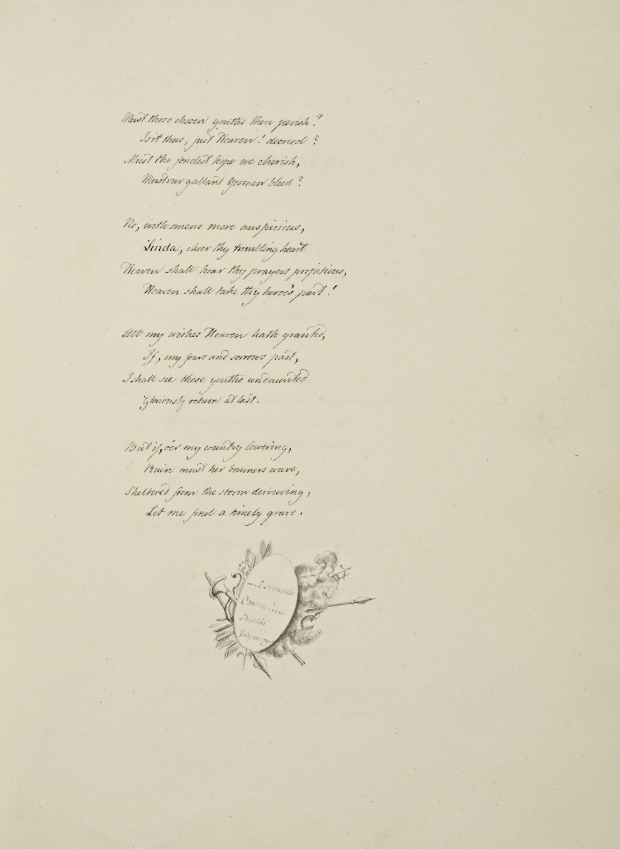 Must those chosen youths then perish?
Is it thus, just Heaven! decreed?
Must the fondest hope we cherish,
Must our gallant Yeomen bleed?
No, with omens more auspicious,
Linda, cheer thy trembling heart
Heaven shall hear thy prayers propitious,
Heaven shall take thy heroe's part!
All my wishes Heaven hath granted,
If, my fears and sorrows past,
I shall see these youths undaunted
Gloriously return at last.
But if, o'er my country lowering,
Ruin must her banners wave,
Sheltered from the storm devouring,
Let me find a timely grave.